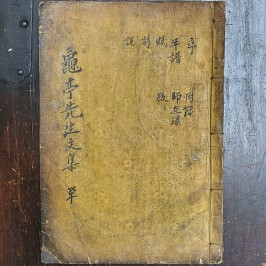 龜亭先生文集 單
序 附錄
年譜 師友錄
賦 跋
詩
說